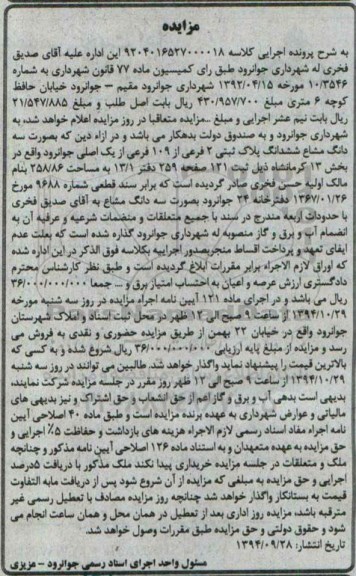 مزایده
به شرح پرونده اجرایی کلاسه ۹۲۰۴۰۱۶۵۲۷۰۰۰۰۱۸ این اداره علیه آقای صدیق
فخری له شهرداری جوانرود طبق رای کمیسیون ماده ۷۷ قانون شهرداری به شماره
۱۰/۳۵۴۶ مورخه ۱۳۹۲/۰۴/۱۵ شهرداری جوانرود مقیم – جوانرود خیابان حافظ
کوچه ۶ متری مبلغ ۴۳۰/۹۵۷/۷۰۰ ریال بابت اصل طلب و مبلغ ۲۱/۵۴۷/۸۸۵
ریال بابت نیم عشر اجرایی و مبلغ ..مزایده متعاقبا در روز مزایده اعلام خواهد شد، به
شهرداری جوانرود و به صندوق دولت بدهکار می باشد و در ازاء دین که بصورت سه
دانگ مشاع ششدانگ پلاک ثبتی ۲ فرعی از ۱۰۹ فرعی از یک اصلی جوانرود واقع در
بخش ۱۳ کرمانشاه ذیل ثبت ۱۲۱ صفحه ۲۵۹ دفتر ۱۳/۱ به مساحت ۲۵۸/۸۶ بنام
مالک اولیه حسن فخری صادر گردیده است که برابر سند قطعی شماره ۹۶۸۸ مورخ
۱۳۶۷/۰۱/۲۶ دفترخانه ۲۴ جوانرود بصورت سه دانگ مشاع به آقای صدیق فخری
با حدودات اربعه مندرج در سند با جمیع متعلقات و منضمات شرعیه و عرفیه آن به
انضمام آب و برق و گاز منصوبه له شهرداری جوانرود گذارده شده است که بعلت عدم
ایفای تعهد و پرداخت اقساط منجربصدور اجراییه بکلاسه فوق الذکر در این اداره شده
که اوراق لازم الاجراء برابر مقررات ابلاغ گردیده است و طبق نظر کارشناس محترم
دادگستری ارزش عرصه و اعیان به احتساب امتیاز برق و ... جمعا ۳۶/۰۰۰/۰۰۰/۰۰۰
ریال می باشد و در اجرای ماده ۱۲۱ آیین نامه اجراء مزایده در روز سه شنبه مورخه
۱۳۹۴/۱۰/۲۹ از ساعت ۹ صبح الی ۱۲ ظهر در محل ثبت اسناد واملاک شهرستان
جوانرود واقع در خیابان ۲۲ بهمن از طریق مزایده حضوری و نقدی به فروش می
رسد و مزایده از مبلغ پایه ارزیابی ۳۶/۰۰۰/۰۰۰/۰۰۰ ریال شروع شده و به کسی که
بالاترین قیمت را پیشنهاد نماید واگذار خواهد شد. طالبین می توانند در روز سه شنبه
۱۳۹۴/۱۰/۲۹ از ساعت ۹ صبح الی ۱۲ ظهر روز مقرر در جلسه مزایده شرکت نمایند،
بدیهی است بدهی آب و برق و گاز اعم از حق انشعاب و حق اشتراک و نیز بدیهی های
مالیاتی و عوارض شهرداری به عهده برنده مزایده است و طبق ماده ۴۰ اصلاحی آیین
نامه اجراء مفاد اسناد رسمی لازم الاجراء هزینه های بازداشت و حفاظت ۵٪ اجرایی و
حق مزایده به عهده متعهدان و به استناد ماده ۱۲۶ اصلاحی آیین نامه مذکور و چنانچه
ملک و متعلقات در جلسه مزایده خریداری پیدا نکند ملک مذکور با دریافت ۵درصد
اجرایی و حق مزایده به مبلغی که مزایده از آن شروع میشود پس از دریافت مابه التفاوت
قیمت به بستانکار واگذار خواهد شد چنانچه روز مزایده مصادف با تعطیل رسمی غیر
مترقبه باشد، مزایده روز اداری بعد از تعطیل در همان محل و همان ساعت انجام می
شود و حقوق دولتی و حق مزایده طبق مقررات وصول خواهد شد.
تاریخ انتشار: ۱۳۹۴/۰۹/۲۸
مسئول واحد اجرای اسناد رسمی جوانرود – عزیزی